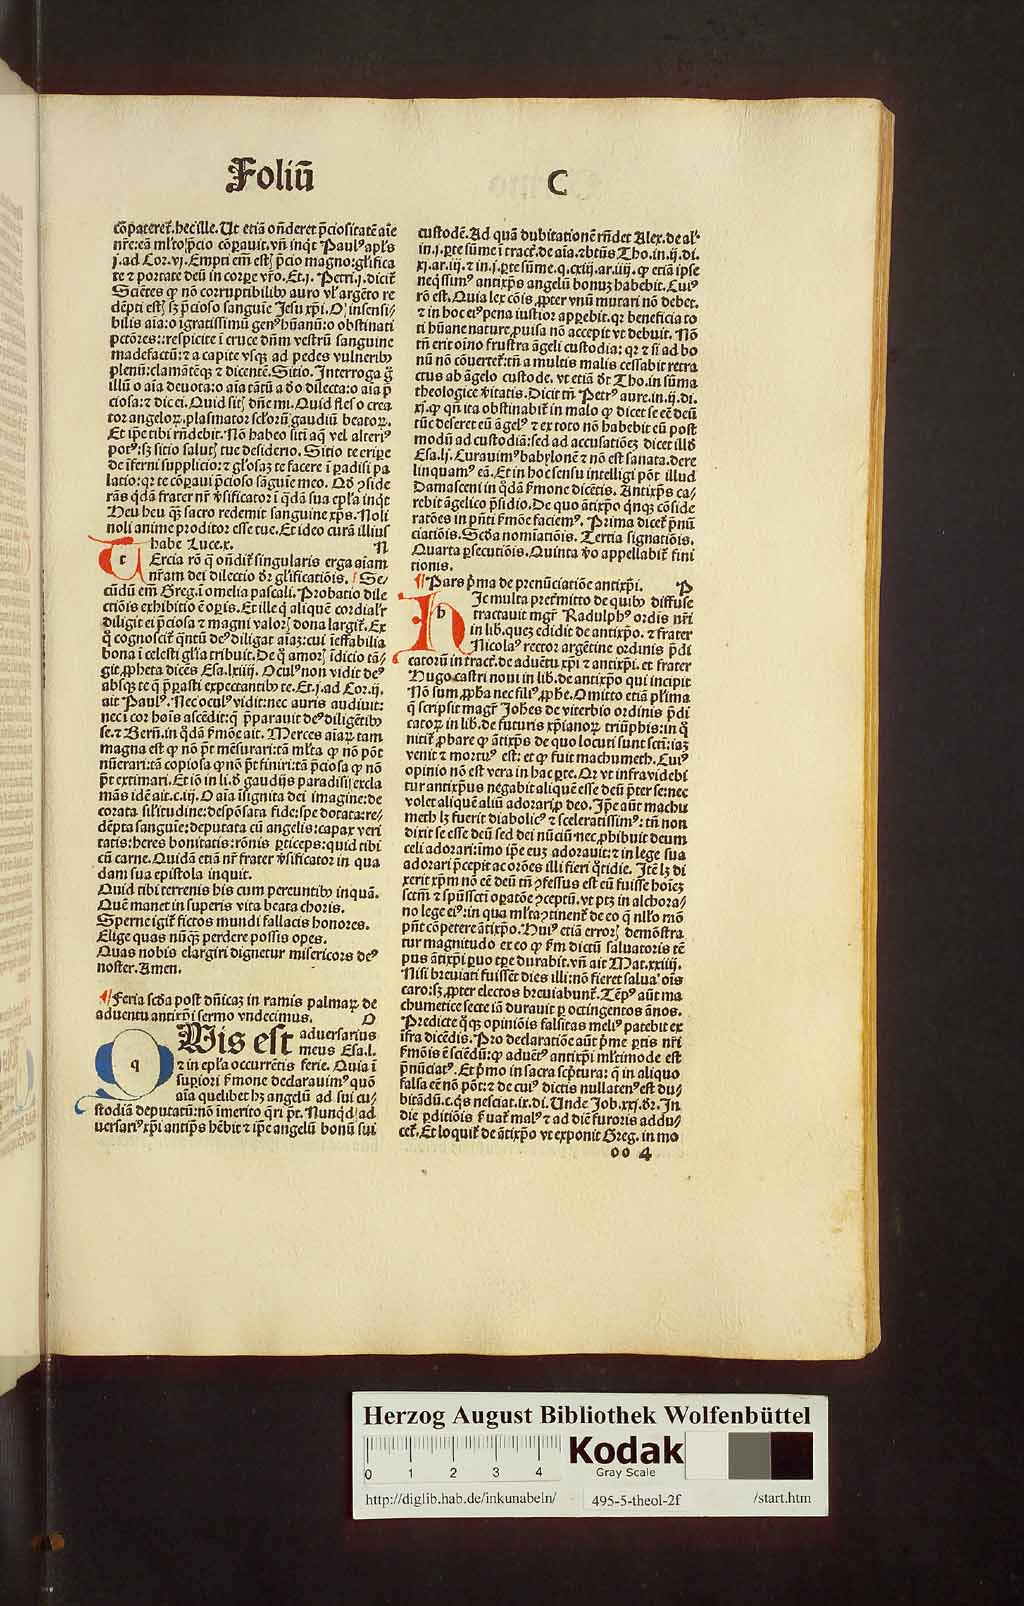 Foliū
C
cōpateret̄. hec ille. Ut etiā oñderet p̄ciositatē aīe
nr̄e: eā ml̄to p̄cio cōꝑauit. vñ inqͭ Paulꝰ apl̄s
j. ad Cor. vj. Empti em̄ estꝭ p̄cio magno: gl̄ifica
te ⁊ portate deū in corꝑe vr̄o. Et. j. Petri. j. dicit̄
Sciētes ꝙ nō corruptibilibꝰ auro vl̓ argēto re
dēpti estꝭ sꝫ p̄cioso sanguīe Jesu xp̄i. O insensi/
bilis aīa: o īgratissimū genꝰ hūanū: o obstinati
pctōres: respicite ī cruce dn̄m vestrū sanguine
madefactū: ⁊ a capite vsqꝫ ad pedes vulneribꝰ
plenū: clamātēqꝫ ⁊ dicentē. Sitio. Interroga ḡ
illū o aīa deuota: o aīa tātū a dō dilecta: o aīa p̄
ciosa: ⁊ dic ei. Quid sitꝭ dn̄e mi. Quid fles o crea
tor angeloꝝ. plasmator sc̄toꝝ gaudiū beatoꝝ.
Et ip̄e tibi rn̄debit. Nō habeo sitī aq̄ vel alteriꝰ
potꝰ: sꝫ sitio salutꝭ tue desiderio. Sitio te eriꝑe
de īferni supplicio: ⁊ gl̄osaꝫ te facere ī ꝑadisi pa
latio: qꝛ te cōꝑaui p̄cioso sāguīe meo. Qd̓ ꝯside
rās q̄dā frater nr̄ v̓sificator ī q̄dā sua epl̄a inqͭ
Heu heu qͣꝫ sacro redemit sanguine xp̄s. Noli
noli anime proditor esse tue. Et ideo curā illius
habe Luce. x. N
Tercia rō q̄ oñdit̄ singularis erga aīam
nr̄am dei dilectio dr̄ gl̄ificatiōis. Se/
cūdū em̄ Greg. ī omelia pascali. Probatio dile
ctiōis exhibitio ē oꝑis. Et ille q̄ aliquē cordial̄r
diligit ei p̄ciosa ⁊ magni valorꝭ dona largit̄. Ex
q̄ cognoscit̄ q̄ntū deꝰ diligat aīaꝫ: cui īeffabilia
bona ī celesti gl̄ia tribuit. De q̄ amorꝭ īdicio tā/
git ꝓpheta dicēs Esa. lxiiij. Oculꝰ non vidit deꝰ
absqꝫ te q̄ p̄parasti expectantibꝰ te. Et. j. ad Cor. ij.
ait Paulꝰ. Nec oculꝰ vidit: nec auris audiuit:
nec ī cor hoīs ascēdit: q̄ p̄parauit deꝰ diligētibꝰ
se. ⁊ Bern̄. in q̄dā s̄mōe ait. Merces aīaꝝ tam
magna est ꝙ nō pōt mēsurari: tā ml̄ta ꝙ nō pōt
nūerari: tā copiosa ꝙ nō pōt finiri: tā p̄ciosa ꝙ nō
pōt extimari. Et iō in li. d̓ gaudijs paradisi excla
mās idē ait. c. iij. O aīa īsignita dei imagine: de
corata sil̄itudine: despōsata fide: spe dotata: re/
dēpta sanguīe: deputata cū angelis: capax veri
tatis: heres bonitatis: rōnis ꝑticeps: quid tibi
cū carne. Quidā etiā nr̄ frater v̓sificator in qua
dam sua epistola inquit.
Quid tibi terrenis his cum pereuntibꝰ inquā.
Quē manet in superis vita beata choris.
Sperne igit̄ fictos mundi fallacis honores.
Elige quas nūqͣꝫ perdere possis opes.
Quas nobis elargiri dignetur misericors deꝰ
noster. Amen.
¶ Feria scd̓a post dn̄icaꝫ in ramis palmaꝝ de
aduentu antixp̄i sermo vndecimus. O
Quis est aduersarius
meus Esa. l.
⁊ in epl̄a occurrētis ferie. Quia ī
suꝑiori s̄mone declarauimꝰ quō
aīa quelibet hꝫ angelū ad sui cu/
stodiā deputatū: nō īmerito q̄ri pōt. Nunqͥd ad
uersariꝰ xp̄i antixp̄s hēbit ⁊ ip̄e angelū bonū sui
custodē. Ad quā dubitationē rn̄det Alex. de al̓
in. j. ꝑte sūme ī tract̄. de aīa. ⁊ btūs Tho. in. ij. di.
xj. ar. iij. ⁊ in. j. ꝑte sūme. q. cxiij. ar. iiij. ꝙ etiā ip̄se
neq̄ssimꝰ antixp̄s angelū bonuꝫ habebit. Cuiꝰ
rō est. Quia lex cōis ꝓpter vnū mutari nō debet.
⁊ in hoc eiꝰ pena iustior apꝑebit. qꝛ beneficia to
ti hūane nature ꝓuisa nō accepit vt debuit. Nō
tn̄ erit oīno frustra āgeli custodia: qꝛ ⁊ si ad bo
nū nō cōuertet̄: tn̄ a multis malis cessabit retra
ctus ab āgelo custode. vt etiā dt̄ Tho. in sūma
theologice v̓itatis. Dicit tn̄ Petrꝰ aure. in. ij. di.
xj. ꝙ qn̄ ita obstinabit̄ in malo ꝙ dicet se eē deū
tūc deseret eū āgelꝰ ⁊ ex toto nō habebit eū post
modū ad custodiā: sed ad accusationeꝫ dicet illd̓
Esa. lj. Curauimꝰ babylonē ⁊ nō est sanata. dere
linquamꝰ eā. Et in hoc sensu intelligi pōt illud
Damasceni in q̄dā s̄mone dicētis. Antixp̄s ca/
rebit āgelico p̄sidio. De quo ātixp̄o q̄nqꝫ cōside
ratōes in p̄nti s̄mōe faciemꝰ. Prima dicet̄ p̄nū
ciatiōis. Scd̓a nomīatiōis. Tertia signatiōis.
Quarta ꝑsecutiōis. Quinta v̓o appellabit̄ fini
tionis.
¶ Pars p̄ma de prenūciatiōe antixp̄i. P
Hic multa pret̓mitto de quibꝰ diffuse
tractauit mgr̄ Radulphꝰ ordīs nr̄i
in lib. queꝫ edidit de antixp̄o. ⁊ frater
Nicolaꝰ rector argētine ordinis p̄di
catorū in tract̄. de aduētu xp̄i ⁊ antixp̄i. et frater
Hugo castri noui in lib. de antixp̄o qui incipit
Nō sum ꝓpha nec filiꝰ ꝓphe. Omitto etiā pl̄ima
q̄ scripsit magr̄ Johēs de viterbio ordinis p̄di
catoꝝ in lib. de futuris xp̄ianoꝝ triūphis: in q̄
nitit̄ ꝓbare ꝙ ātixp̄s de quo locuti sunt scti: iaꝫ
venit ⁊ mortuꝰ est: et ꝙ fuit machumeth. Cuiꝰ
opinio nō est vera in hac ꝑte. Qꝛ vt infra videbi
tur antixp̄us negabit aliquē esse deū p̄ter se: nec
volet aliquē aliū adorari ꝓ deo. Ip̄e aūt machu
meth lꝫ fuerit diabolicꝰ ⁊ sceleratissimꝰ: tn̄ non
dixit se esse deū sed dei nūciū: nec ꝓhibuit deum
celi adorari: īmo ip̄e euꝫ adorauit: ⁊ in lege sua
adorari p̄cepit ac orōes illi fieri q̄tidie. Itē lꝫ di
xerit xp̄m nō eē deū tn̄ ꝯfessus est eū fuisse hoīeꝫ
sctm̄ ⁊ spūssct̄i oꝑatōe ꝯceptū. vt ptꝫ in alchora/
no lege eiꝰ: in qua ml̄ta ꝯtinent̄ de eo q̄ nll̓o mō
pn̄t cōpetere ātixp̄o. Huiꝰ etiā errorꝭ demōstra
tur magnitudo ex eo ꝙ s̄m dictū saluatoris tē
pus ātixp̄i ꝑuo tꝑe durabit. vñ ait Mat. xxiiij.
Nisi breuiati fuissēt dies illi: nō fieret salua oīs
caro: sꝫ ꝓpter electos breuiabunt̄. Tēpꝰ aūt ma
chumetice secte iā durauit ꝑ octingentos ānos.
Predicte q̄qꝫ opiniōis falsitas meliꝰ patebit ex
īfra dicēdis. Pro declaratiōe aūt p̄me ꝑtis nr̄i
s̄mōis ē sciēdū: ꝙ aduētꝰ antixp̄i ml̄timode est
p̄nūciatꝰ. Et p̄mo in sacra sc̄ptura: q̄ in aliquo
falsa eē nō pōt: ⁊ de cuiꝰ dictis nullatenꝰ est du/
bitādū. c. q̄s nesciat. ix. di. Unde Job. xxj. dr̄. In
die ꝑditiōis s̄uat̄ malꝰ ⁊ ad diē furoris addu/
cet̄. Et loquit̄ de ātixp̄o vt exponit Greg. in mo
oo 4
Herzog August Bibliothek Wolfenbüttel
Kodak
Gray Scale
0 1 2 3 4
http://diglib.hab.de/inkunabeln/ 495-5-theol-2f /start.htm